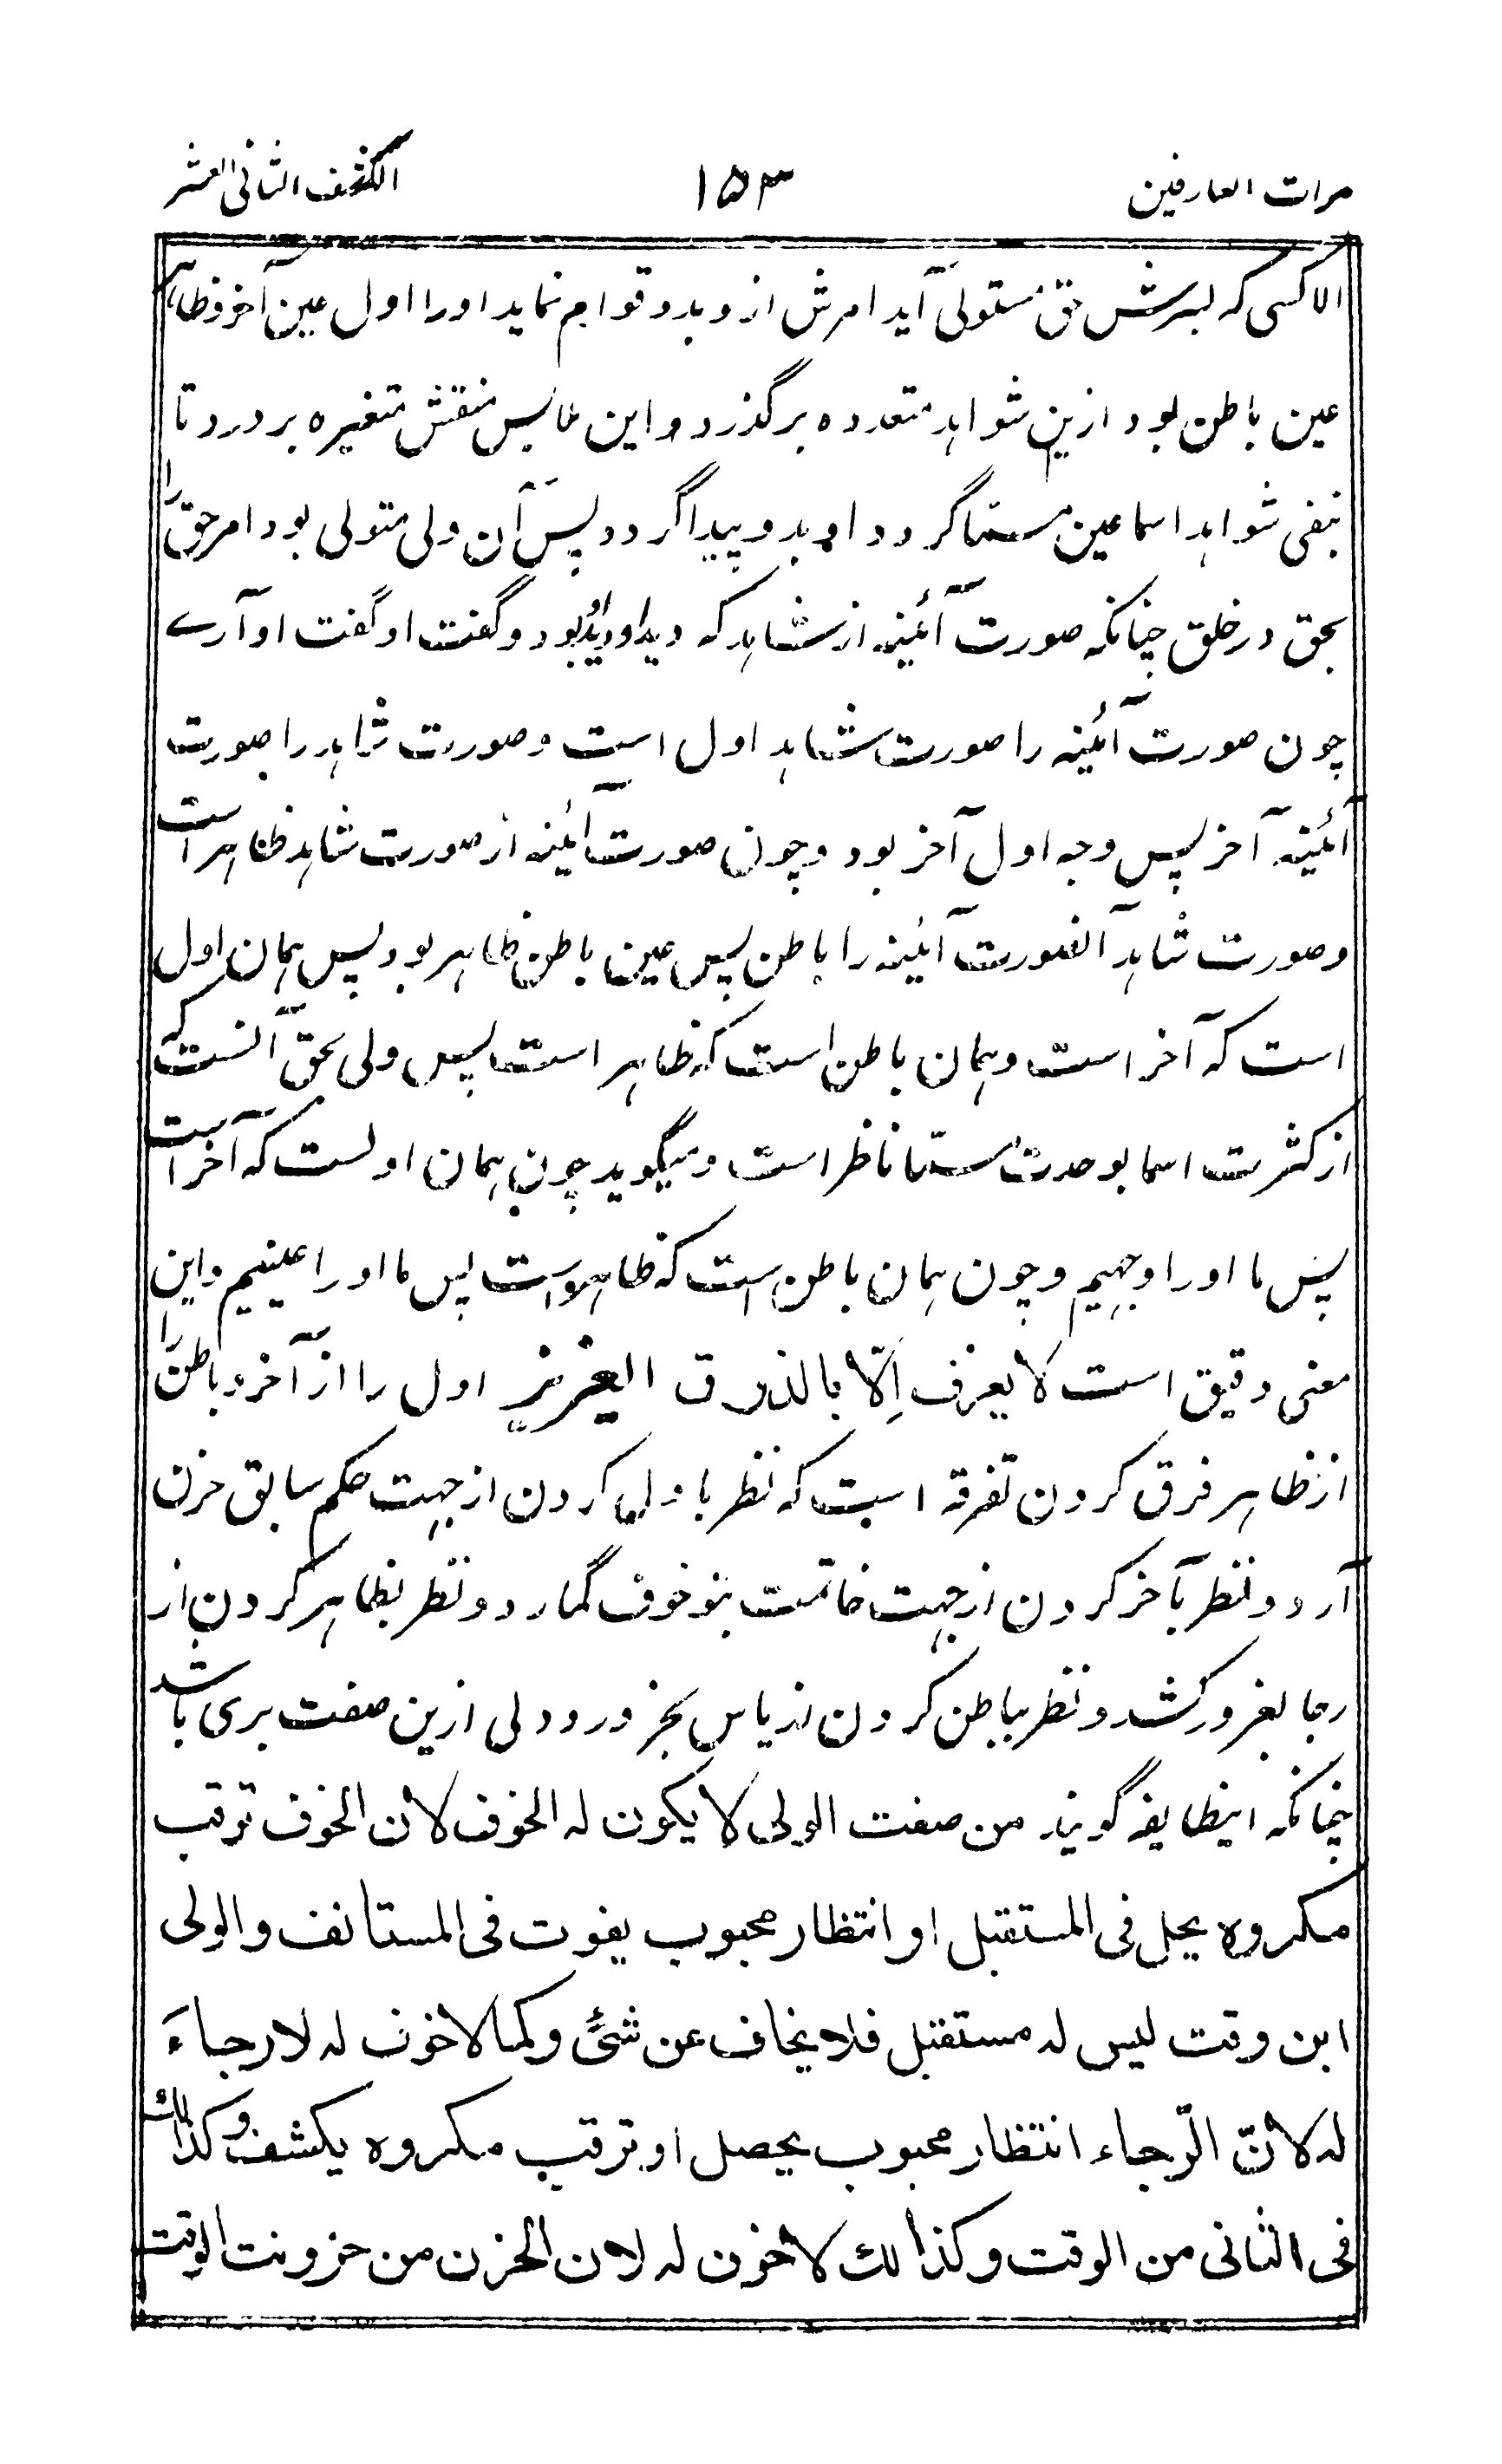 مرات العارفین ۱۵۳ الکشف الثانی العشر
الا کسی که بسرش حق مستولی آید امرش ازو بدو قوام نماید اورا اول عین آخر و ظاهر
عین باطن بود ازین شواهد متعدده برگذرد و این ملابس منقش متغیره بردرد تا
بنفی شواهد اسما عین مسما گردد او بدو پیدا گردد پس آن ولی متولی بود امر حق را
بحق در خلق چنانکه صورت آئینه از شاهد که دید او دید او بود و گفت او گفت او آرے
چون صورت آئینه را صورت شاهد اول است و صورت شاهد را صورت
آئینه آخر پس وجه اول آخر بود و چون صورت آئینه از صورت شاهد ظاهر است
و صورت شاهد آنصورت آئینه را باطن پس عین باطن ظاهر بود پس همان اول
است که آخر است و همان باطن است که ظاهر است پس ولی بحق آنست که
از کثرت اسما بوحدت مسمّا ناظر است و میگوید چون همان اولست که آخر است
پس ما اورا وجهیم و چون همان باطن است که ظاهر است پس ما اورا عینیم و این
معنی دقیق است لا یعرف اِلّا بالذوق العزیز اول را از آخر و باطن را
از ظاهر فرق کردن تفرقه است که نظر باول کردن از جهت حکم سابق حزن
آرد و نظر بآخر کردن از جهت خاتمت بنو خوف گمارد و نظر بظاهر کردن از
رجا بغرور کشد و نظر بباطن کردن از یاس بجز ورود ولی ازین صفت بری باشد
چنانکه اینطایفه گویند من صفت الولی لا یکون له الخوف لان الخوف ترقب
مکروه یحل فی المستقبل او انتظار محبوب یفوت فی المستانف والولی
ابن وقت لیس له مستقبل فلا یخاف عن شیءٍ وکما لا خوف له لا رجاءَ
له لانّ الرّجاء انتظار محبوب یحصل او ترقب مکروه یکشف وکذالك
فی الثانی من الوقت وکذالك لا حزن له لان الحزن من حزونت الوقت